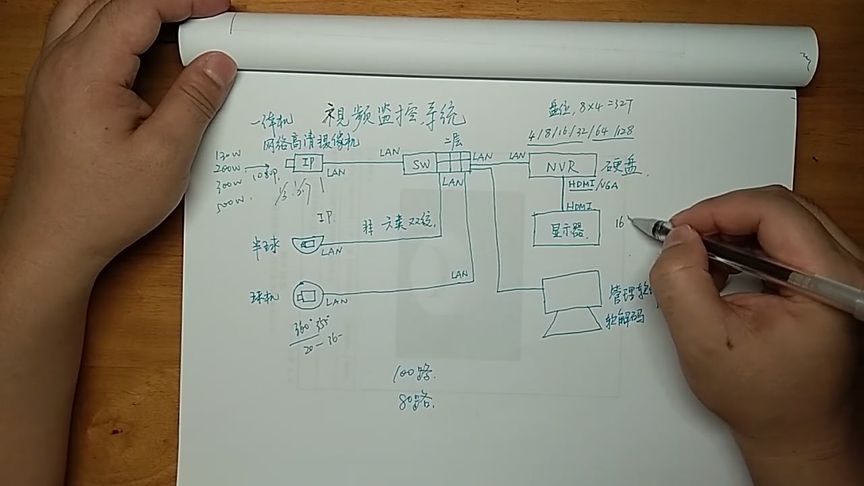 视频监控系统
一体机
网络高清摄像机
盘位, 8×4=32T
4/8/16/32/64/128
130W
200W
300W
500W
1080P
IP
LAN
LAN
SW
二层
LAN
LAN
NVR
硬盘
LAN
HDMI/VGA
HDMI
显示器
16
IP
半球
LAN
六类双绞
球机
LAN
LAN
360°
20-36
管理软
软解码
100路
80路